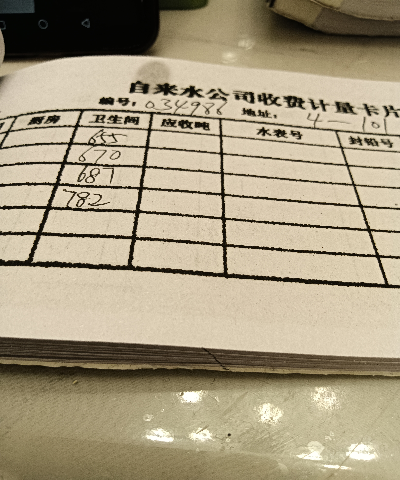 自来水公司收费计量卡片
编号: 034986 地址: 4-101
厨房 卫生间 应收吨 水表号 封铅号
655
670
687
782